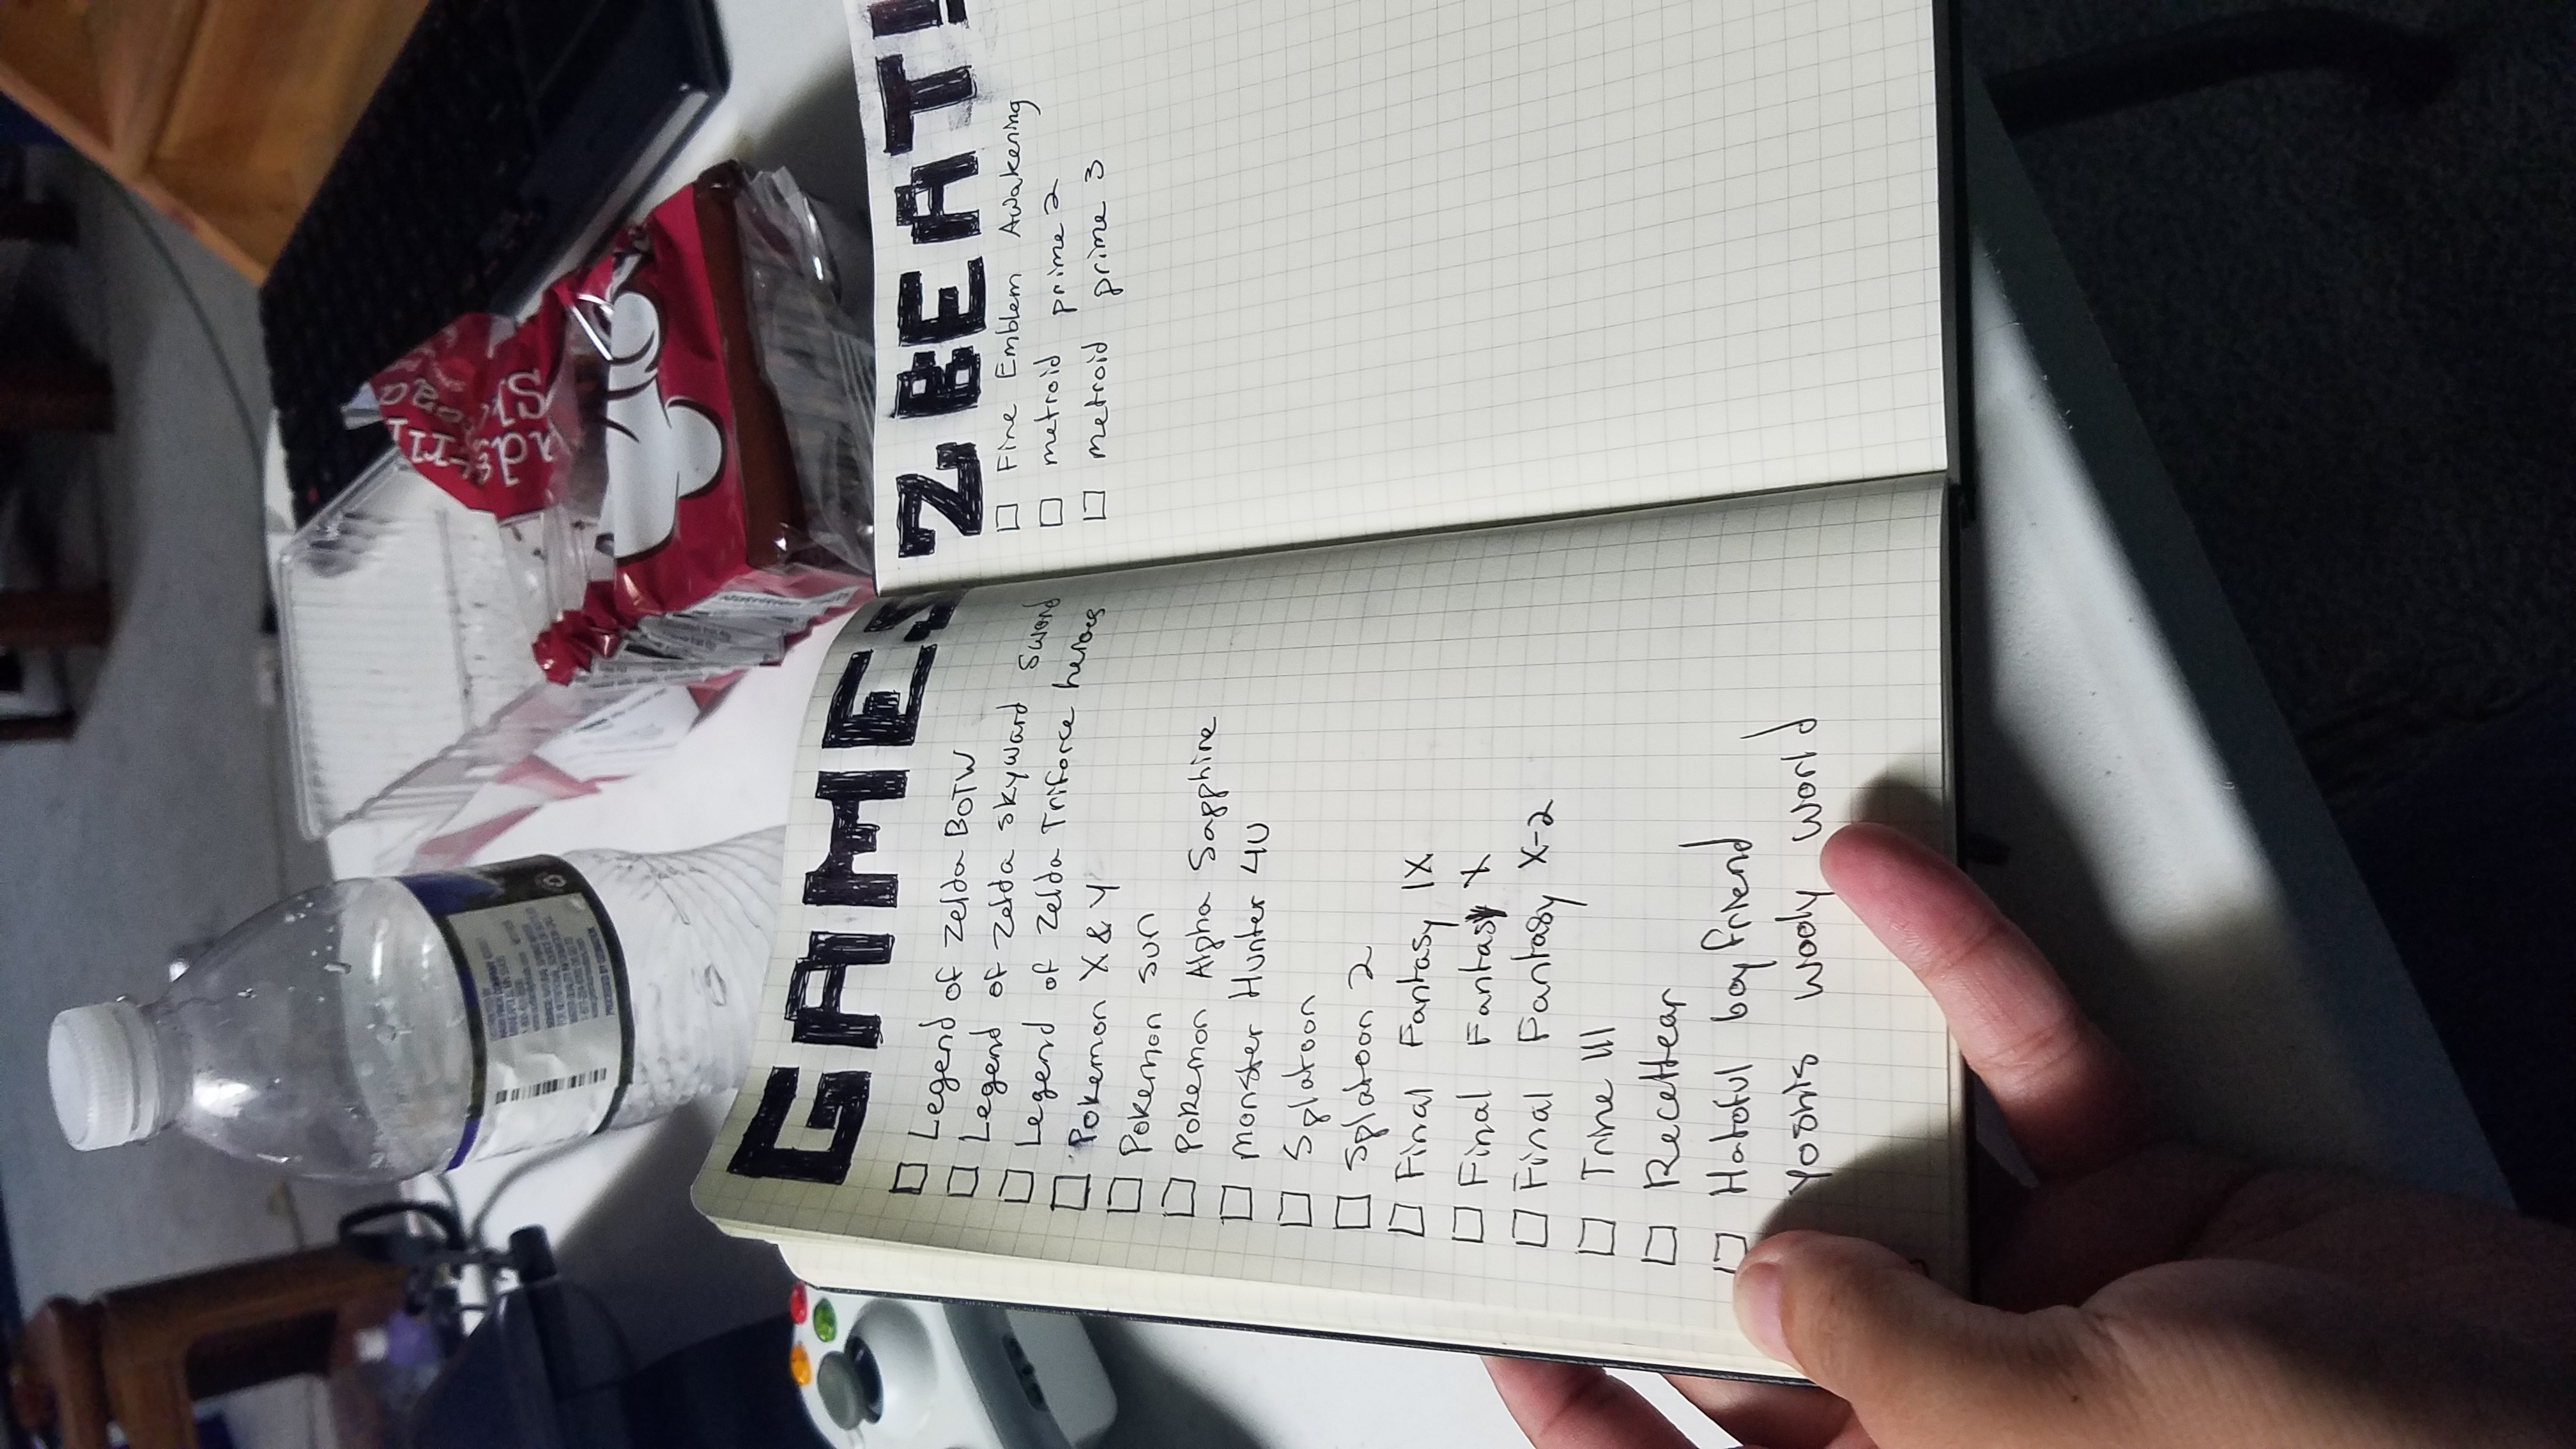 GAMES
Legend of Zelda BOTW
Legend of Zelda skyward sword
Legend of Zelda Triforce heroes
Pokemon X & Y
Pokemon sun
Pokemon Alpha Sapphire
monster Hunter 4U
Splatoon
Splatoon 2
Final Fantasy IX
Final Fantasy X
Final Fantasy X-2
Trine III
Recettear
Hatoful boyfriend
Yoshis wooly world
2 BEAT!
Fire Emblem Awakening
metroid prime 2
metroid prime 3
Nutrition